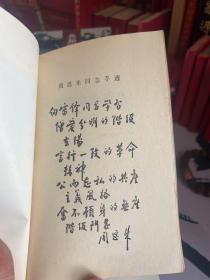 周恩来同志手迹
向雷锋同志学习
憎爱分明的阶级
立场
言行一致的革命
精神
公而忘私的共产
主义风格
奋不顾身的无产
阶级斗志
周恩来